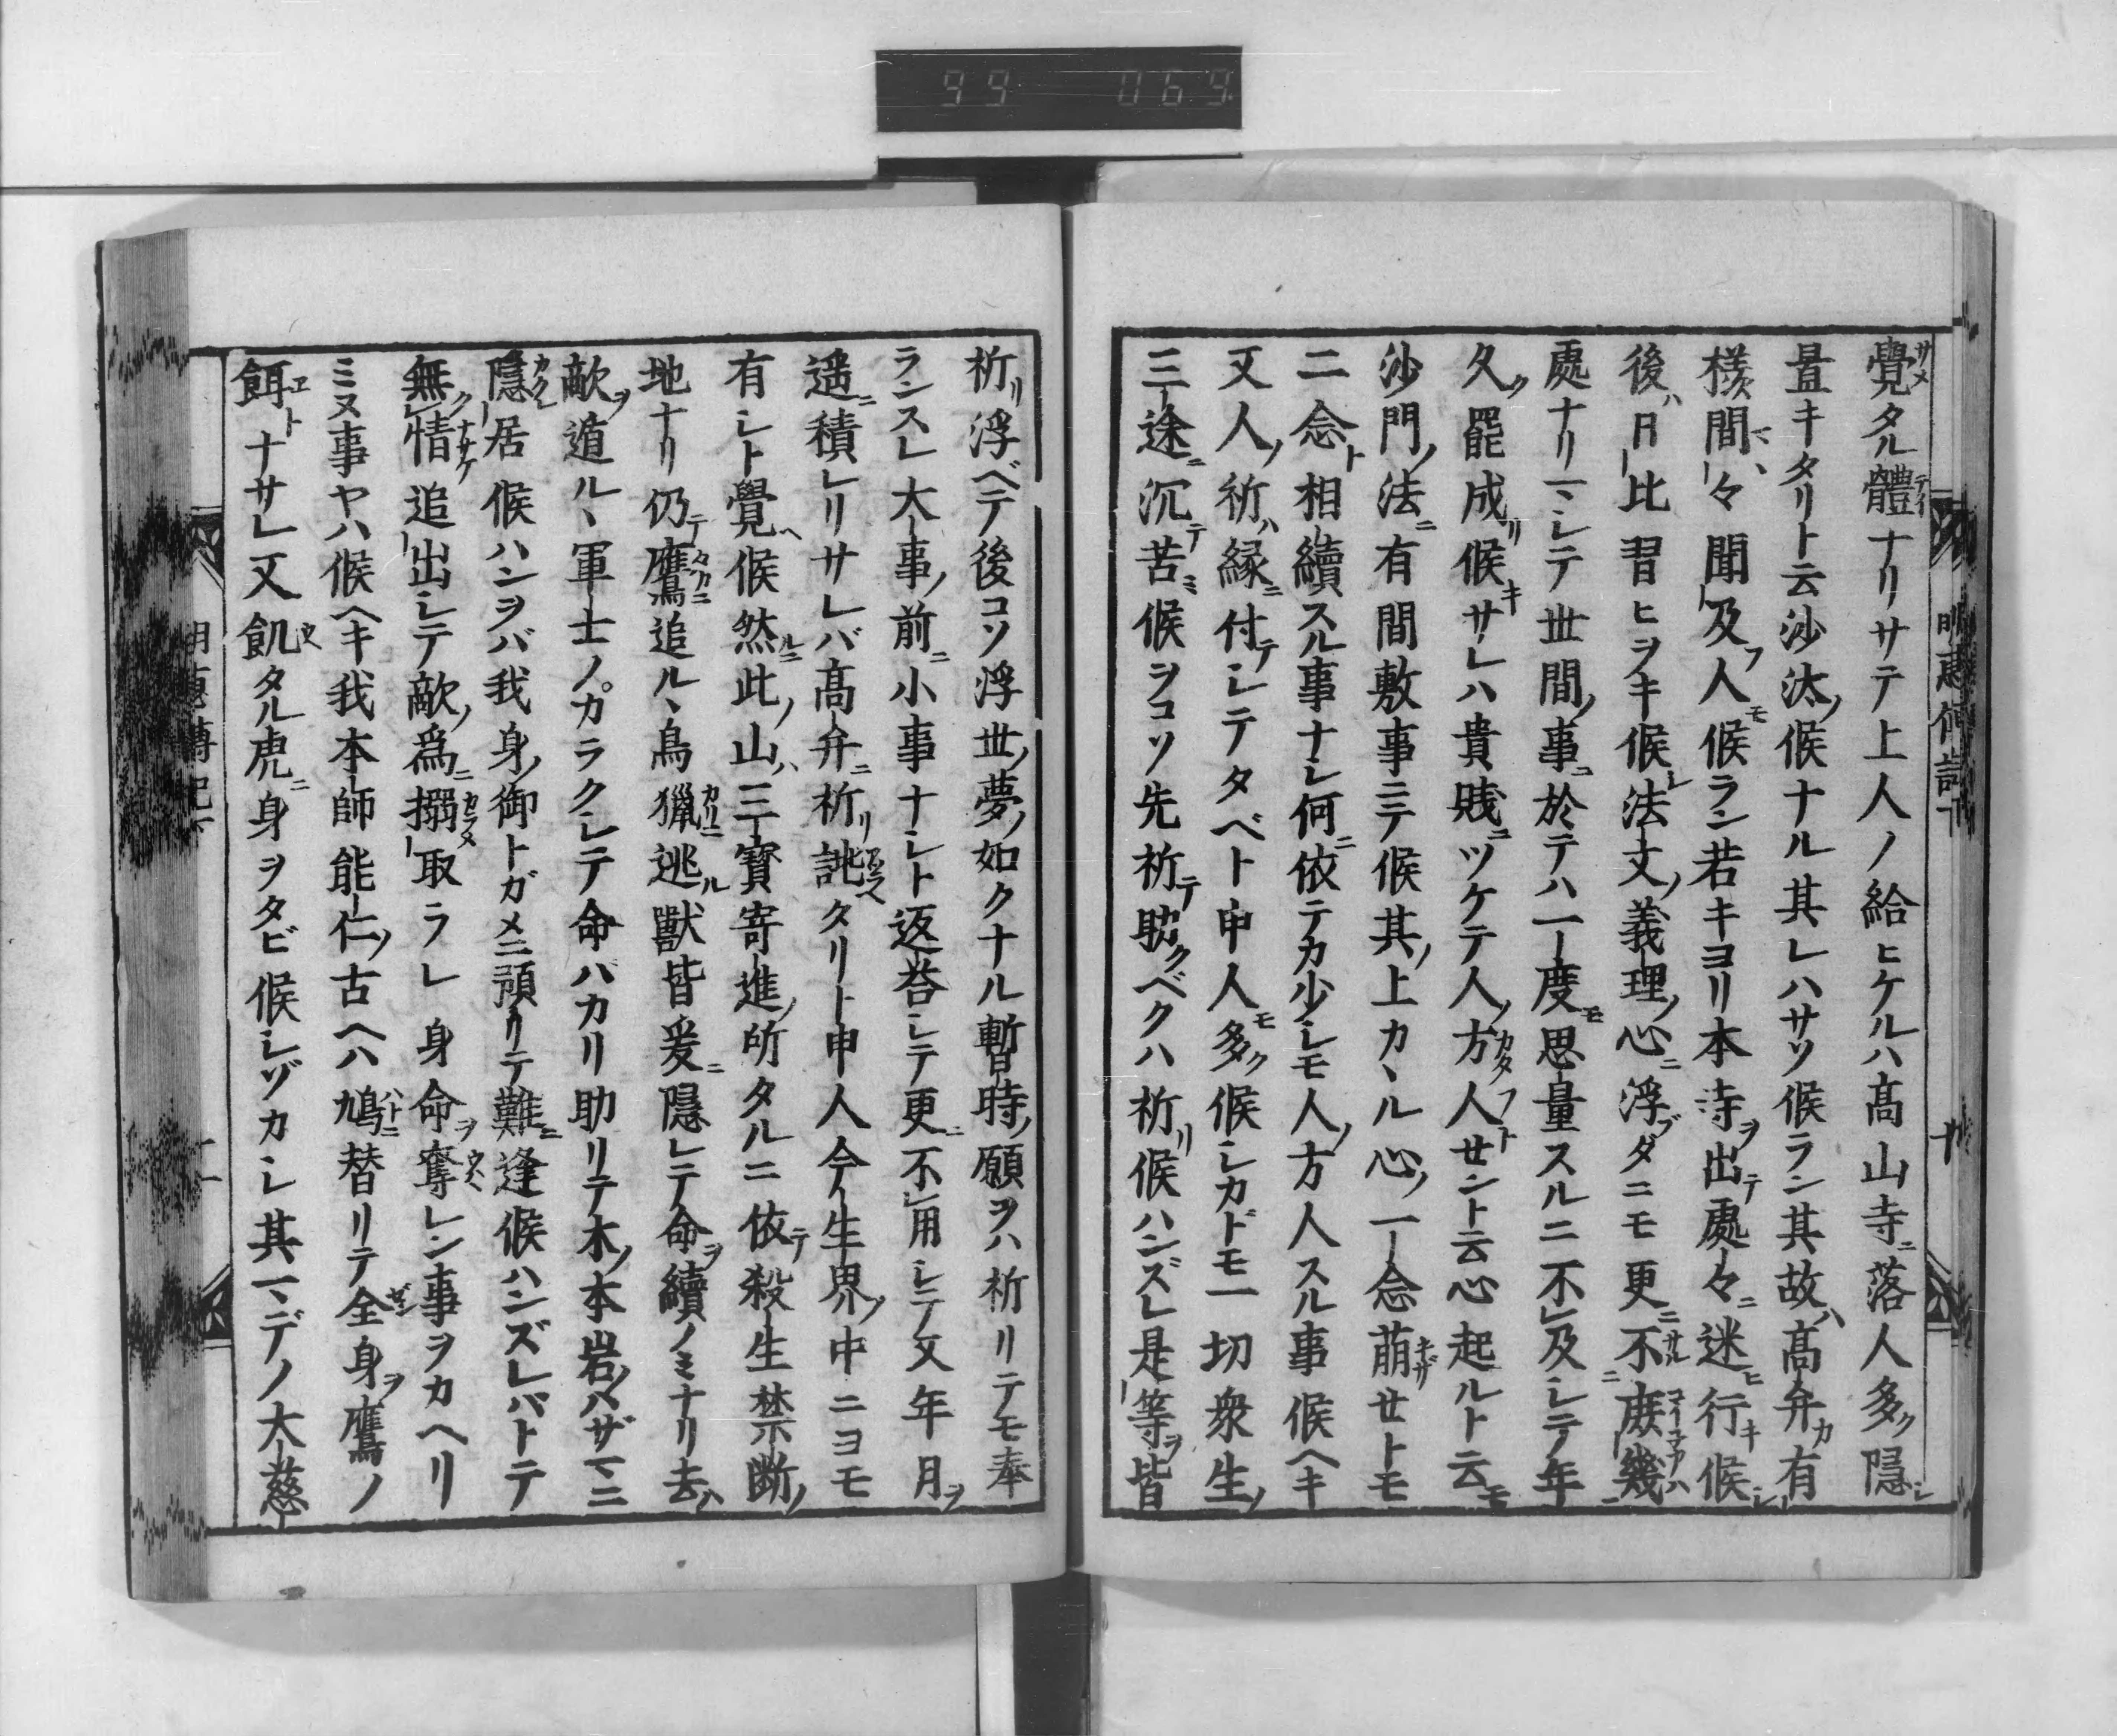 覺タル體ナリサテ上人ノ給ヒケルハ髙山寺ニ落人多ク隱シ
置キタリト云沙汰ノ候ナル其レハサソ候ラン其故ハ髙弁カ有
樣間々聞及フ人モ候ラン若キヨリ本寺ヲ出テ處々ニ迷ヒ行キ候シ
後ハ日比習ヒヲキ候シ法文ノ義理ノ心ニ浮ブダニモ更ニ不庶幾
處ナリマシテ世間ノ事ニ於テハ一度モ思量スルニ不及シテ年
久ク罷成リ候キサレハ貴賎ニツケテ人ノ方人セント云心起ルト云モ
沙門ノ法ニ有間敷事ニテ候其ノ上カヽル心ノ一念萠セトモ
二念ト相續スル事ナシ何ニ依テカ少シモ人ノ方人スル事候ヘキ
又人ノ祈ハ縁ニ付テシテタベト申人モ多ク候シカドモ一切衆生ノ
三途ニ沉テ苦ミ候ヲコソ先祈テ助クベクハ祈リ候ハンズレ是等ヲ皆
祈リ浮ベテ後コソ浮世ノ夢ノ如クナル暫時ノ願ヲハ祈リテモ奉
ランスレ大事ノ前ニ小事ナシト返荅シテ更ニ不用シテ又年月ヲ
遥ニ積レリサレバ髙弁ニ祈リ誂タリト申人今生界ノ中ニヨモ
有シト覺ヘ候然ルニ此ノ山ハ三寳寄進ノ所タルニ依テ殺生禁断ノ
地ナリ仍テ鷹ニ追ルヽ鳥獵ニ逃ル獸皆爰ニ隱レテ命ヲ續ノミナリ去ハ
敵ヲ遁ルヽ軍士ノカラクシテ命バカリ助リテ木ノ本岩ノハザマニ
隱居候ハンヲバ我身ノ御トガメニ預リテ難ニ逢候ハンズレバトテ
無情追出シテ敵ノ爲ニ搦取ラレ身命ヲ奪レン事ヲカヘリ
ミヌ事ヤハ候ヘキ我本師能仁ノ古ヘハ鳩ニ替リテ全身ヲ鷹ノ
餌トナサレ又飢タル虎ニ身ヲタビ候シゾカシ其マデノ大慈
明惠傳記下
十